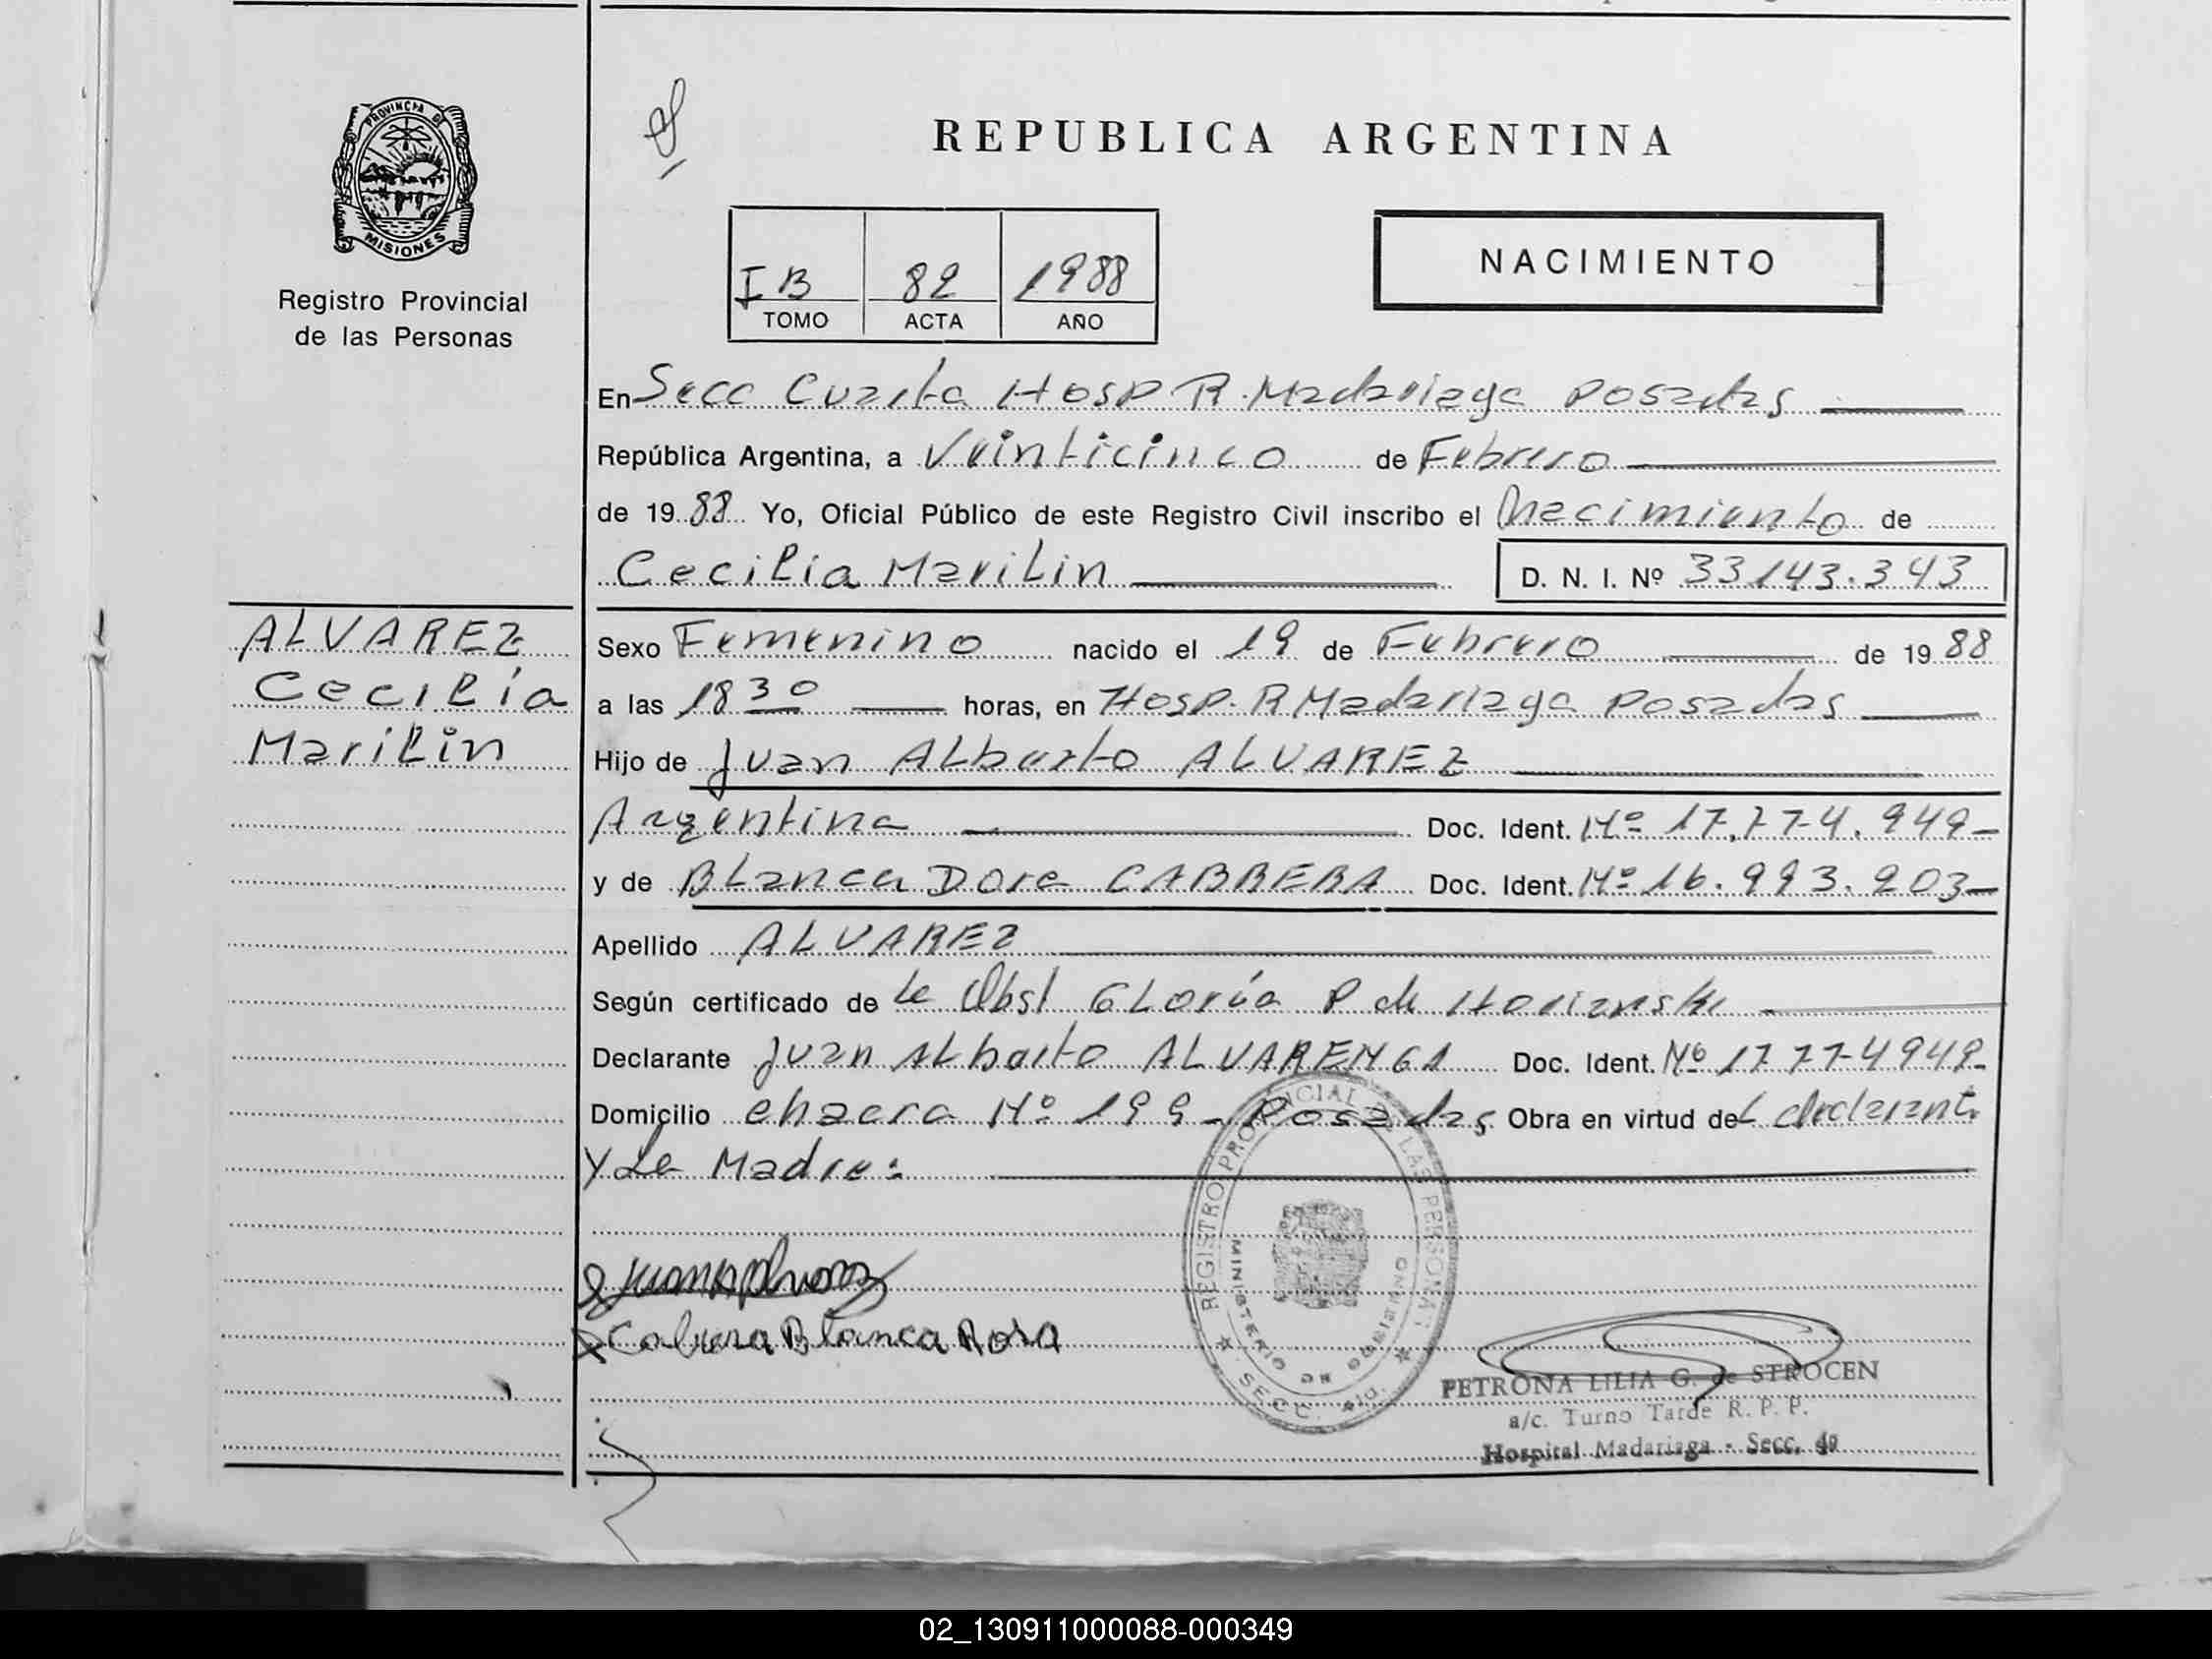 PROVINCIA DE
MISIONES
Registro Provincial
de las Personas
REPUBLICA ARGENTINA
NACIMIENTO
I B 82 1988
TOMO ACTA AÑO
En Secc Cuarta Hosp R. Madariaga Posadas
República Argentina, a Veinticinco de Febrero
de 1988 Yo, Oficial Público de este Registro Civil inscribo el Nacimiento de
Cecilia Marilin D. N. I. Nº 33143.343
ALVAREZ
Cecilia
Marilin
Sexo Femenino nacido el 19 de Febrero de 1988
a las 18 30 horas, en Hosp. R Madariaga Posadas
Hijo de Juan Alberto ALVAREZ
Argentina Doc. Ident. Nº 17.774.949-
y de Blanca Dora CABRERA Doc. Ident. Nº 16.993.203-
Apellido ALVAREZ
Según certificado de la Obst Gloria P de
Declarante Juan Alberto ALVARENGA Doc. Ident. Nº 17774949-
Domicilio chacra Nº 199- Posadas Obra en virtud del declarante
Y La Madre:
Cabrera Blanca Rosa
REGISTRO PROVINCIAL DE LAS PERSONAS
MINISTERIO DE GOBIERNO
SECC. 4ta.
PETRONA LILIA G. de STROCEN
a/c. Turno Tarde R. P. P.
Hospital Madariaga - Secc. 4º
02_130911000088-000349